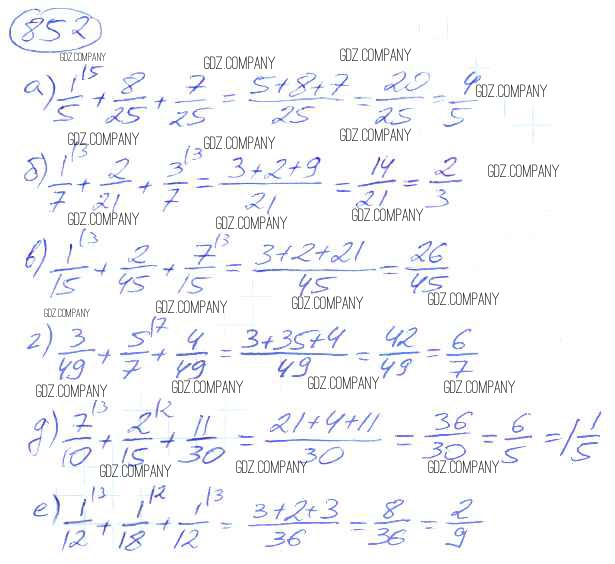 852
GDZ.COMPANY GDZ.COMPANY GDZ.COMPANY
а) 1/5 |5 + 8/25 + 7/25 = (5+8+7)/25 = 20/25 = 4/5 GDZ.COMPANY
GDZ.COMPANY GDZ.COMPANY GDZ.COMPANY
б) 1/7 |3 + 2/21 + 3/7 |3 = (3+2+9)/21 = 14/21 = 2/3 GDZ.COMPANY
GDZ.COMPANY GDZ.COMPANY GDZ.COMPANY
в) 1/15 |3 + 2/45 + 7/15 |3 = (3+2+21)/45 = 26/45
GDZ.COMPANY GDZ.COMPANY GDZ.COMPANY GDZ.COMPANY
г) 3/49 + 5/7 |7 + 4/49 = (3+35+4)/49 = 42/49 = 6/7
GDZ.COMPANY GDZ.COMPANY GDZ.COMPANY GDZ.COMPANY
д) 7/10 |3 + 2/15 |2 + 11/30 = (21+4+11)/30 = 36/30 = 6/5 = 1 1/5
GDZ.COMPANY GDZ.COMPANY GDZ.COMPANY
е) 1/12 |3 + 1/18 |2 + 1/12 |3 = (3+2+3)/36 = 8/36 = 2/9